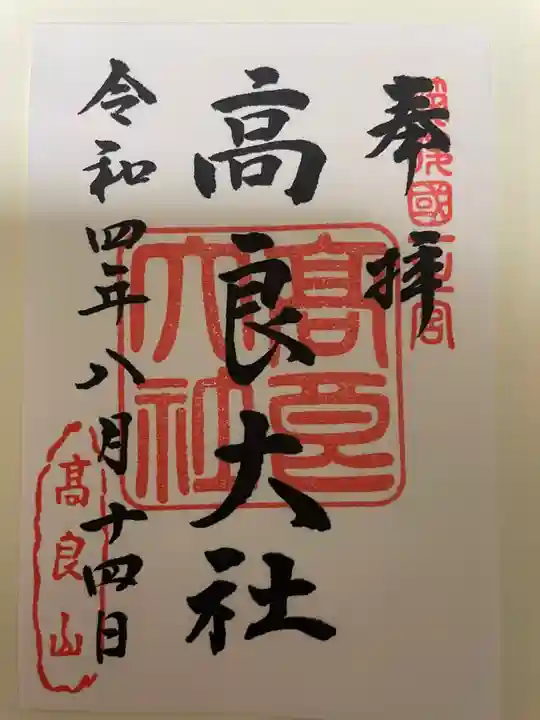 奉拝
高良大社
令和四年八月十四日
高良大社
高良山